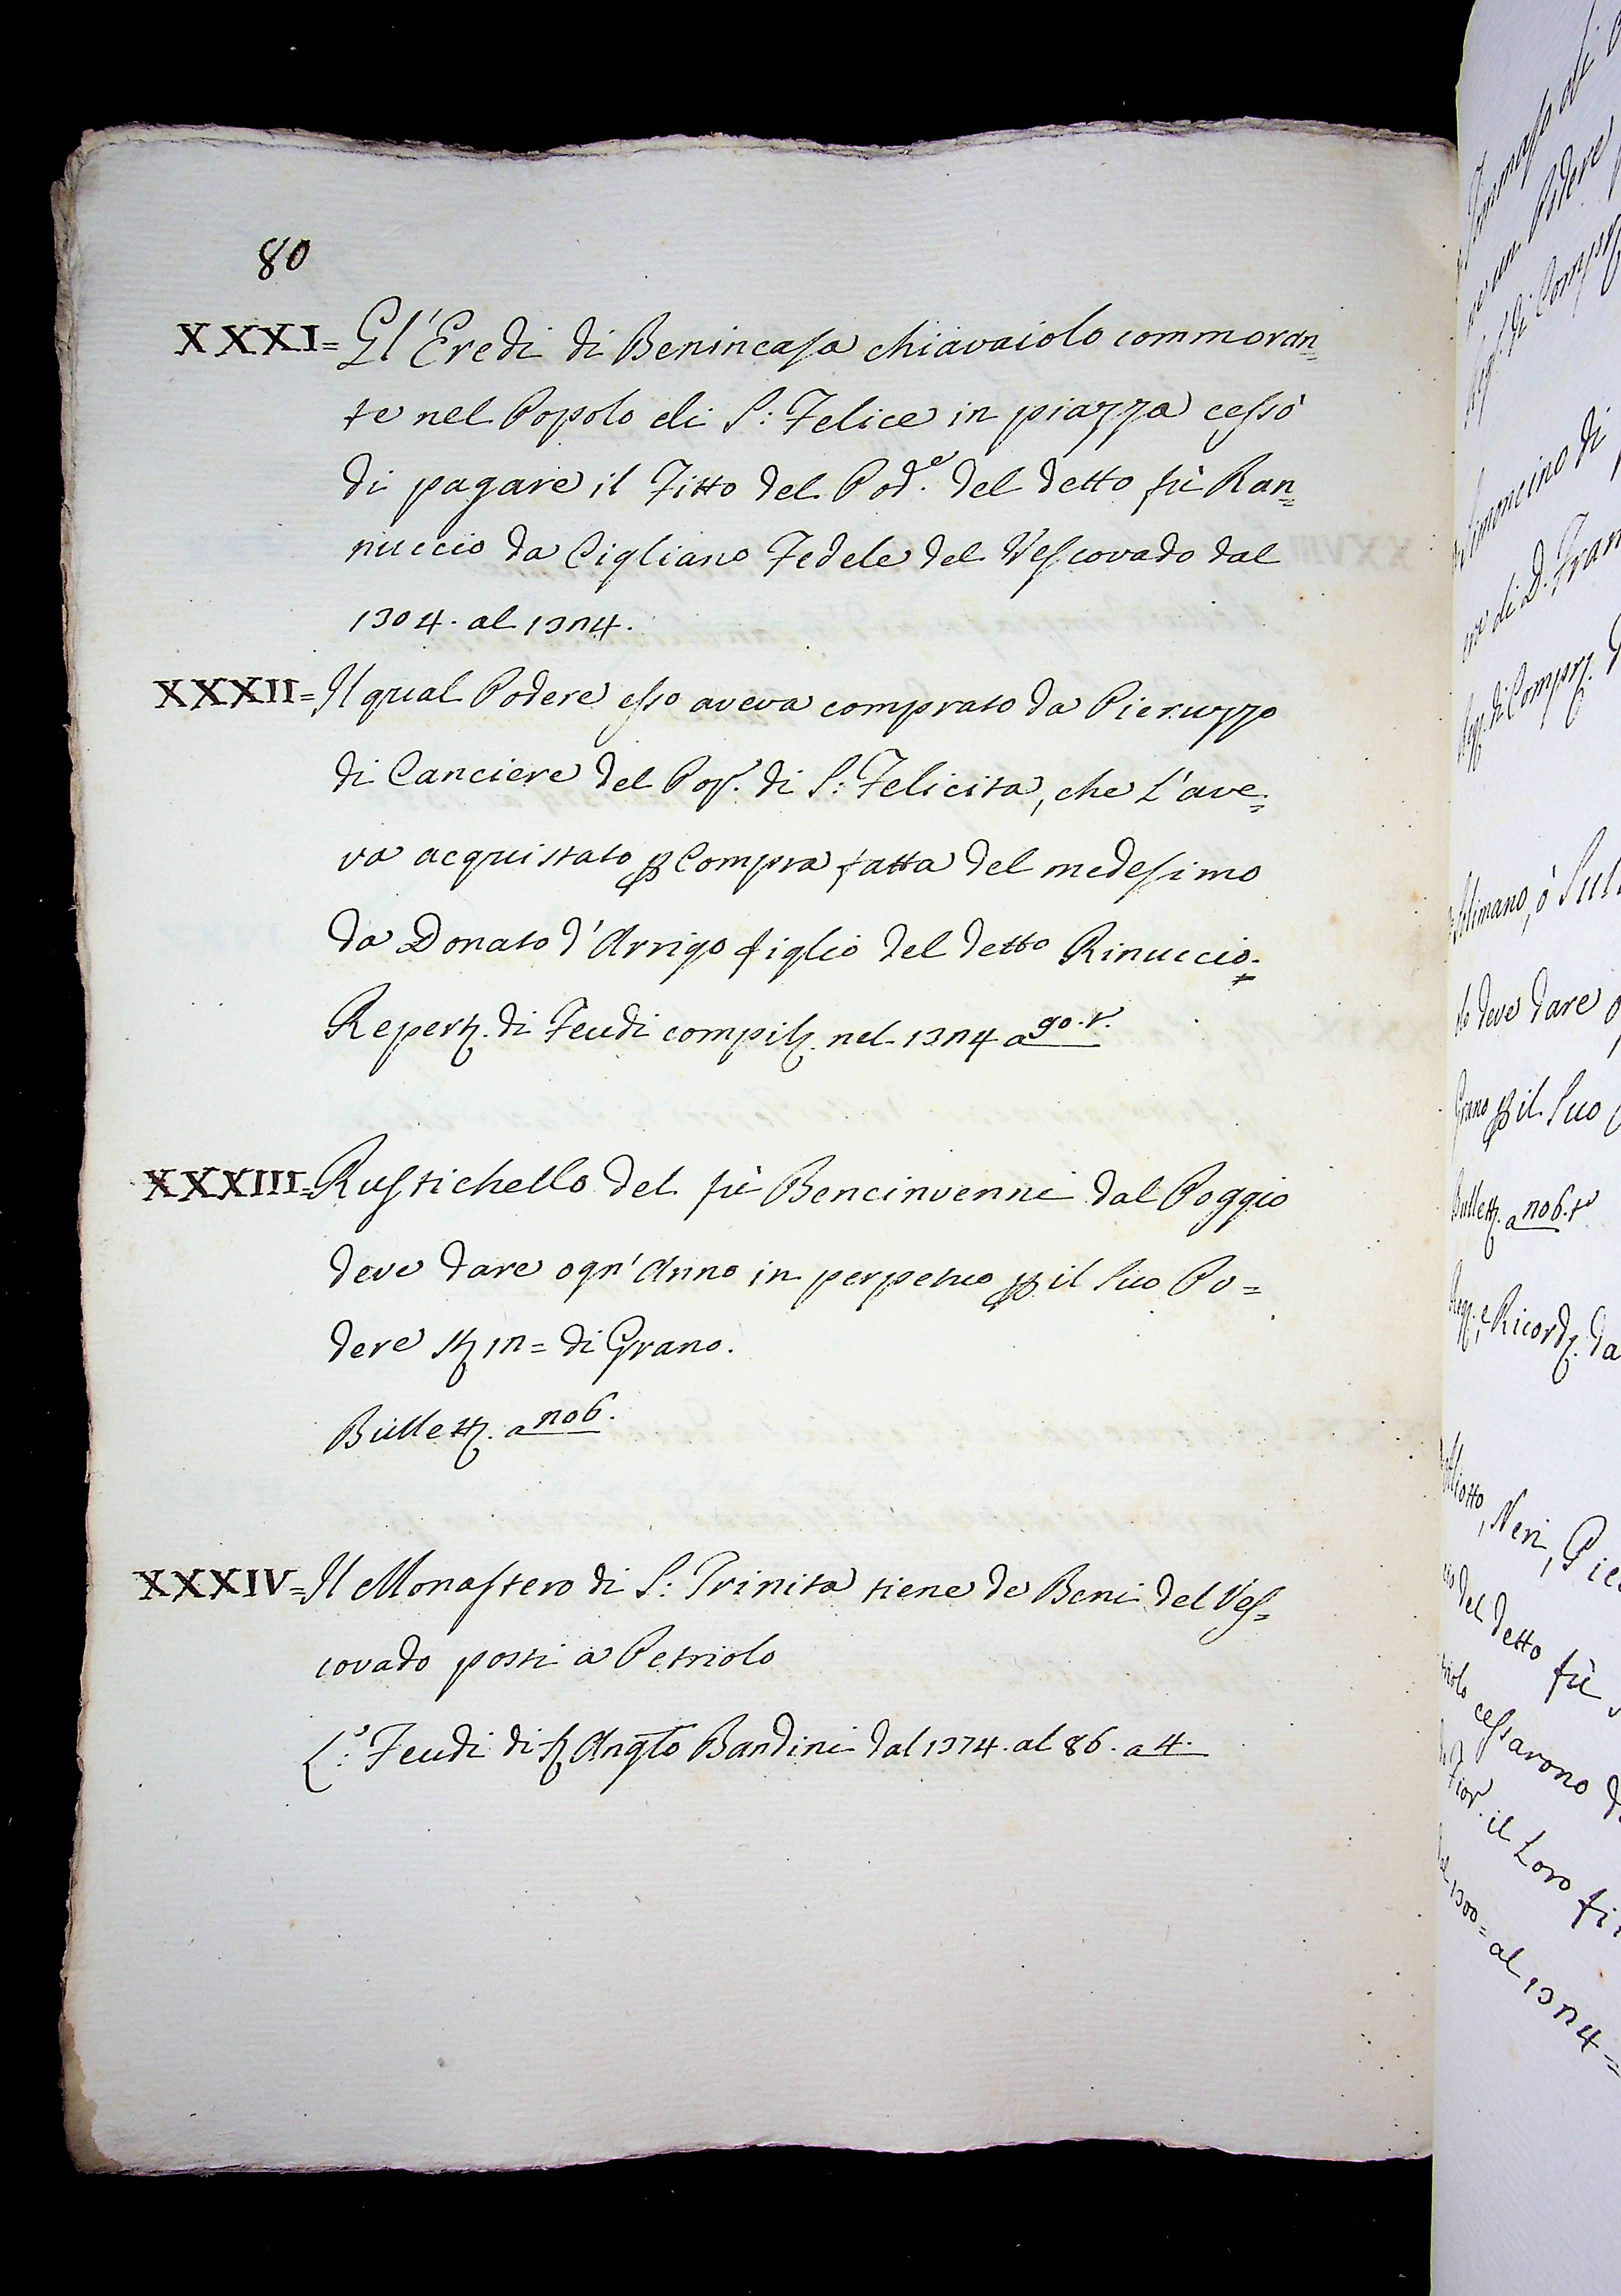 80
XXXI= Gl'Eredi di Benincasa chiavaiolo commoran=
te nel Popolo di S: Felice in piazza cessò
di pagare il Fitto del Pod.e del detto fù Ran=
nuccio da Cigliano Fedele del Vescovado dal
1304. al
XXXII= Il qual Podere esso aveva comprato da Pieruzzo
di Canciere del Pop. di S: Felicita, che l'ave=
va acquistato p Compra fatta del medesimo
da Donato d'Arrigo figlio del detto Rinuccio.
Repert. di Feudi compil. nel
XXXIII= Rustichello del fù Bencinvenni dal Poggio
deve dare ogn'Anno in perpetuo p il suo Po=
dere di Grano.
Bullett. a
XXXIV= Il Monastero di S: Trinita tiene de Beni del Ves=
covado posti a Petriolo
L.o: Feudi di Bandini dal 1374. al 86. a 4.
un Podere
Simoncino di
di D. Fran
deve dare
Grano p il suo
Bullett. a
e Ricord. da
Neri, Pie
del detto fù
cessarono d
il Loro fi
al